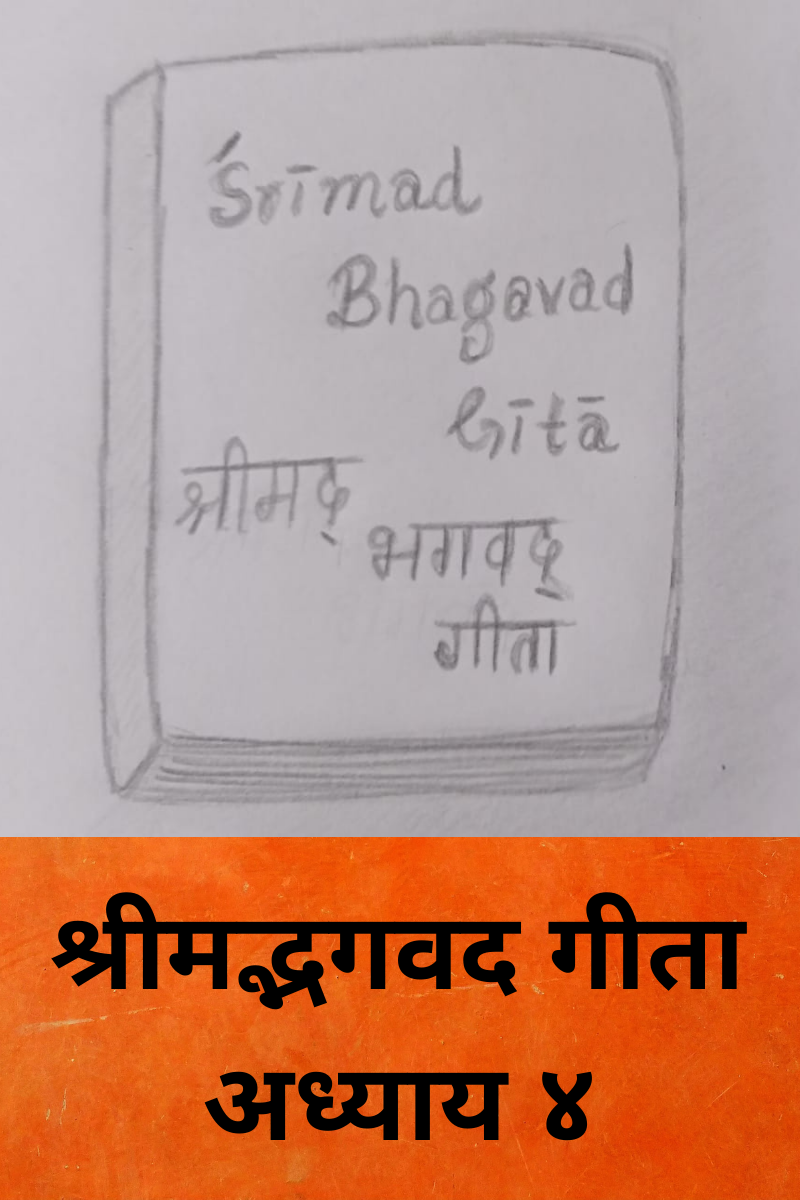 Śrīmad
Bhagavad
Gītā
श्रीमद्
भगवद्
गीता
श्रीमद्भगवद गीता
अध्याय ४